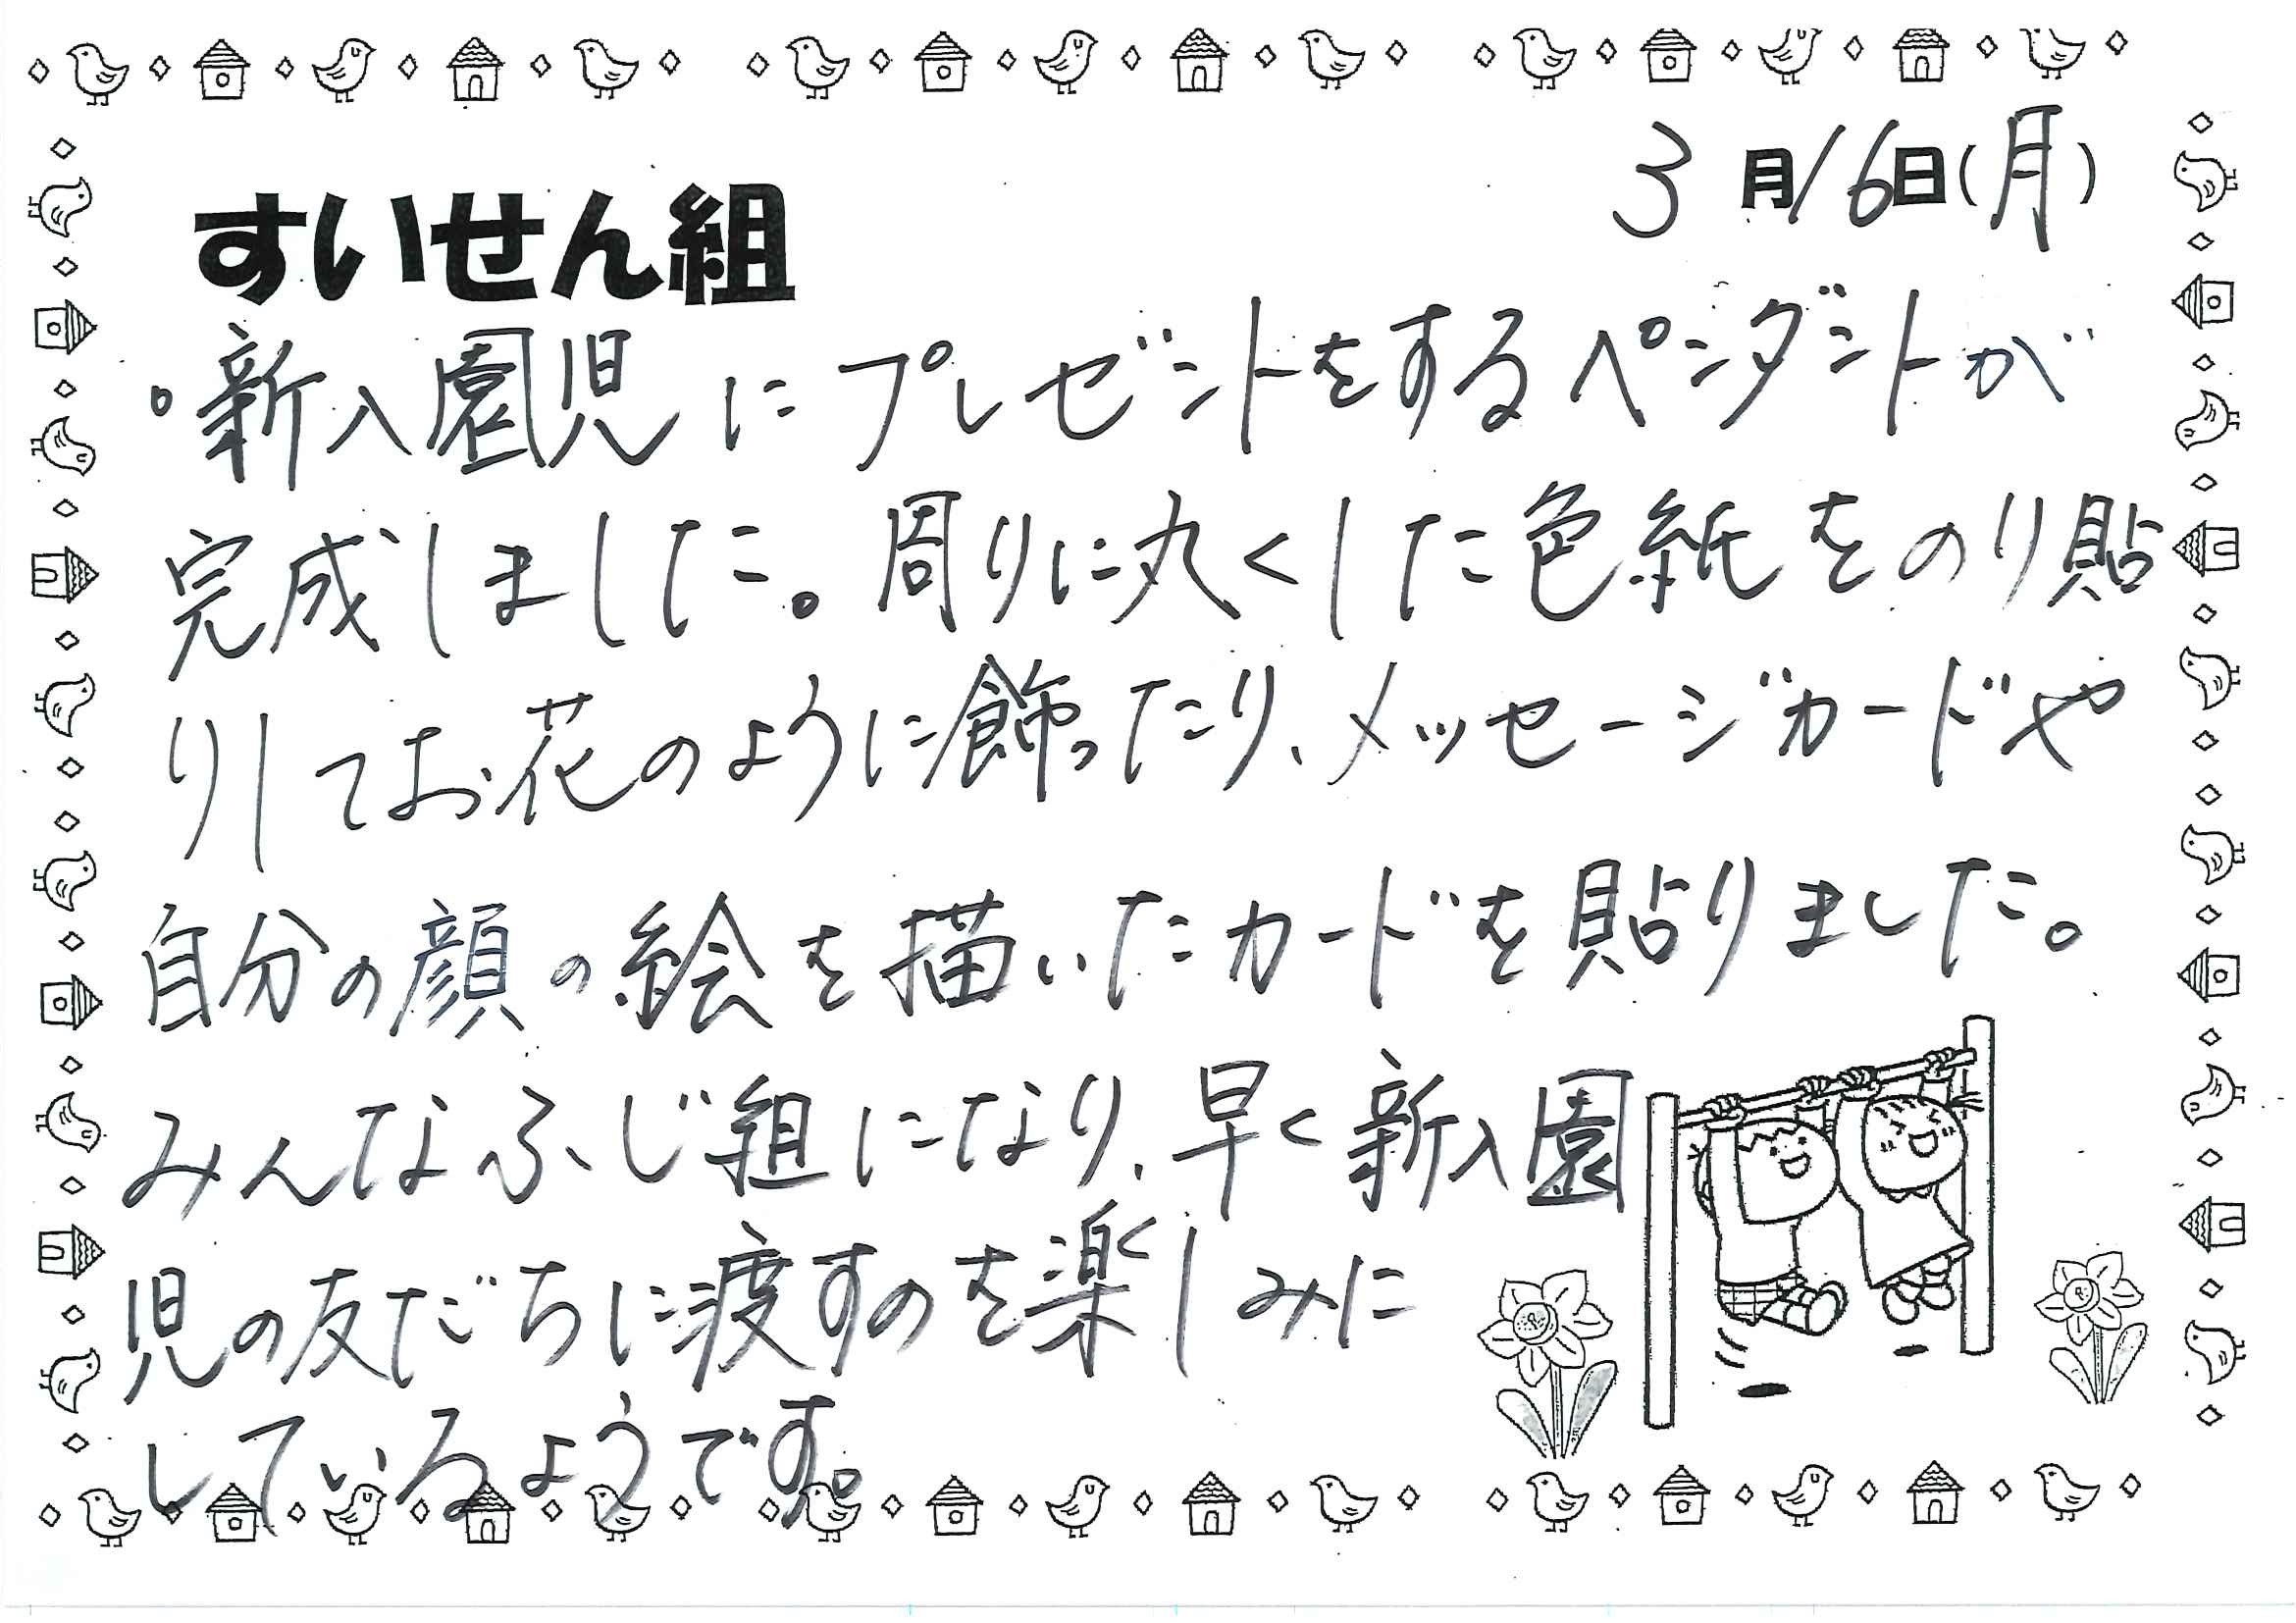 3月16日(月)
すいせん組
。新入園児にプレゼントをするペンダントが
完成しました。周りに丸くした色紙をのり貼
りしてお花のように飾ったり、メッセージカードや
自分の顔の絵を描いたカードを貼りました。
みんなふじ組になり、早く新入園
児の友だちに渡すのを楽しみに
しているようです。